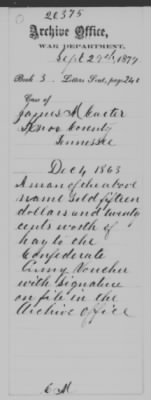 20375
Archive Office,
WAR DEPARTMENT,
Sept 29th, 1877
Book 3. Letters Sent, page 240
Case of
James M Carter
County
Tennessee
Dec 4 1863
A man of the above
name sold fifteen
dollars and twenty
cents worth of
hay to the
Confederate
Army Voucher
with signature
on file in the
Archive Office
C M